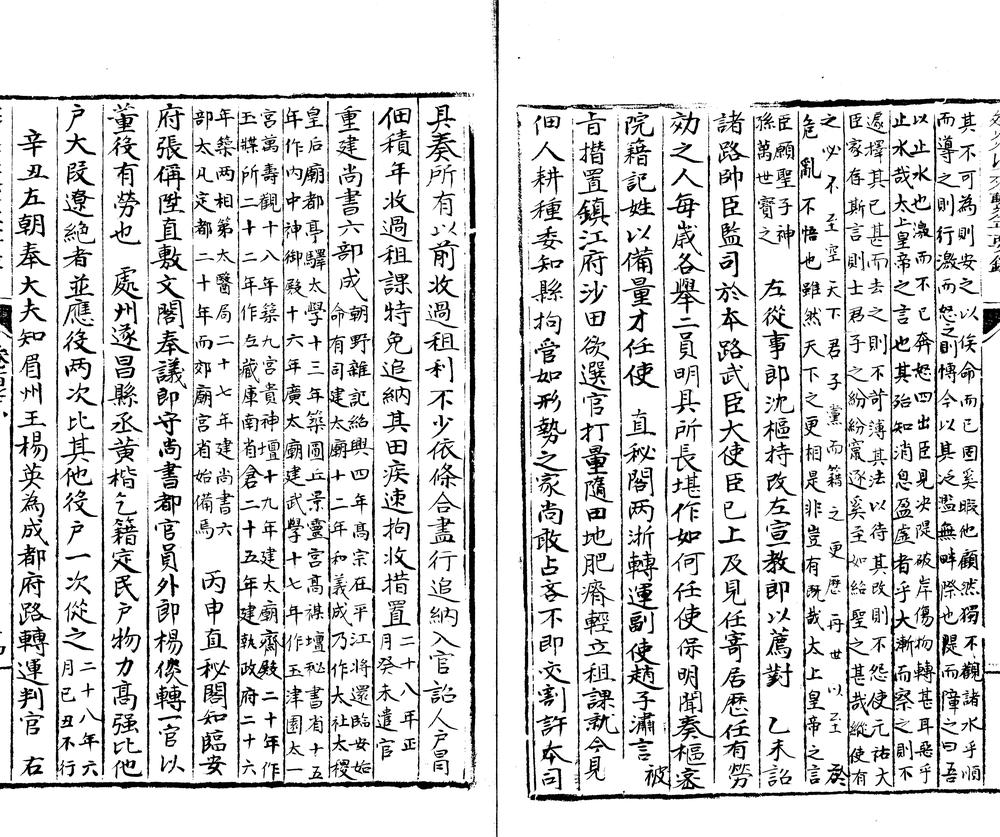 其不可為則安之以俟命而已固奚暇他顧然獨不觀諸水乎順
而導之則行激而怒之則慱今以其泛濫無畔際也隄而障之曰吾
以止水也激而不已奔怒四出臣見决隄破岸傷物轉甚耳惡乎
止水哉大上皇帝之言也其殆知消息盈虛者乎大漸而察之則不
遽擇其已甚而去之則不苛溥其法以待其改則不怨使元祐大
臣家存斯言則士君子之紛紛竄逐奚至如紹聖之甚哉縱使有
之必不至空天下君子黨而籍之更歷再世以至
危亂不悟也雖然天下之更相是非豈有旣哉太上皇帝之言
臣願聖子神
孫萬世寳之
左從事郎沈樞持改左宣教郎以薦對　乙未詔
諸路帥臣監司於本路武臣大使臣已上及見任寄居歷任有勞
効之人每歲各舉二員明具所長堪作如何任使保明聞奏樞宻
院籍記姓以備量才任使　直秘閣两浙轉運副使趙子潚言被
旨措置鎮江府沙田欲選官打量隨田地肥瘠輕立租課就令見
佃人耕種委知縣拘管如形勢之家尚敢占吝不即交割許本司
具奏所有以前收過租利不少依條合盡行追納入官詔人户冒
佃積年收過租課特免追納其田疾速拘收措置
二十八年正
月癸未遣官
重建尚書六部成
朝野雜記紹興四年髙宗在平江將還臨安始
命有司建太廟十二年和義成乃作大社太稷
皇后廟都亭驛太學十三年築圜丘景靈宮髙禖壇秘書省十五
年作内中神御殿十六年廣太廟建武學十七年作玉津園太一
宮萬壽觀十八年築九宮貴神壇十九年建太廟齋殿二十年作
玉牒所二十二年作左藏庫南省倉二十五年建執政府二十六
年築两相第太醫局二十七年建尚書六
部太凡定都二十年而郊廟宮省始備焉
丙申直秘閣知臨安
府張偁陞直敷文閣奉議郎守尚書都官員外郎楊倓轉一官以
董役有勞也　處州遂昌縣丞黄楷乞籍定民户物力髙强比他
户大段遼絶者並應役两次比其他役户一次從之
二十八年六
月已丑不行
辛丑左朝奉大夫知眉州王楊英為成都府路轉運判官　右